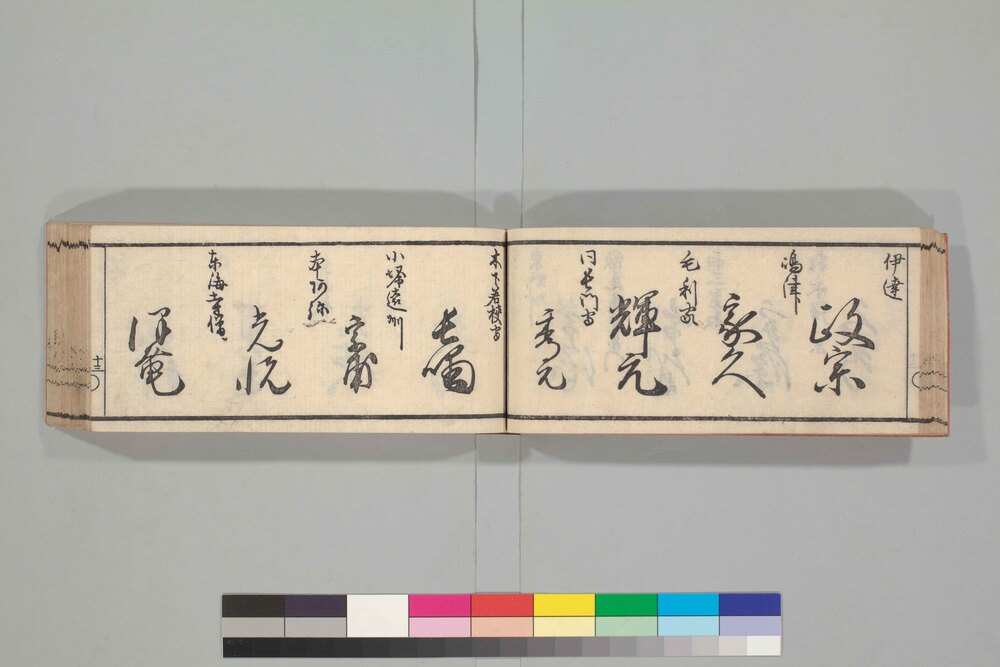 伊達
政宗
嶋津
家久
毛利家
輝元
同長門守
秀元
木下若狭守
長嘯
小堀遠州
宗甫
本阿弥
光悦
東海寺僧
沢菴
十三